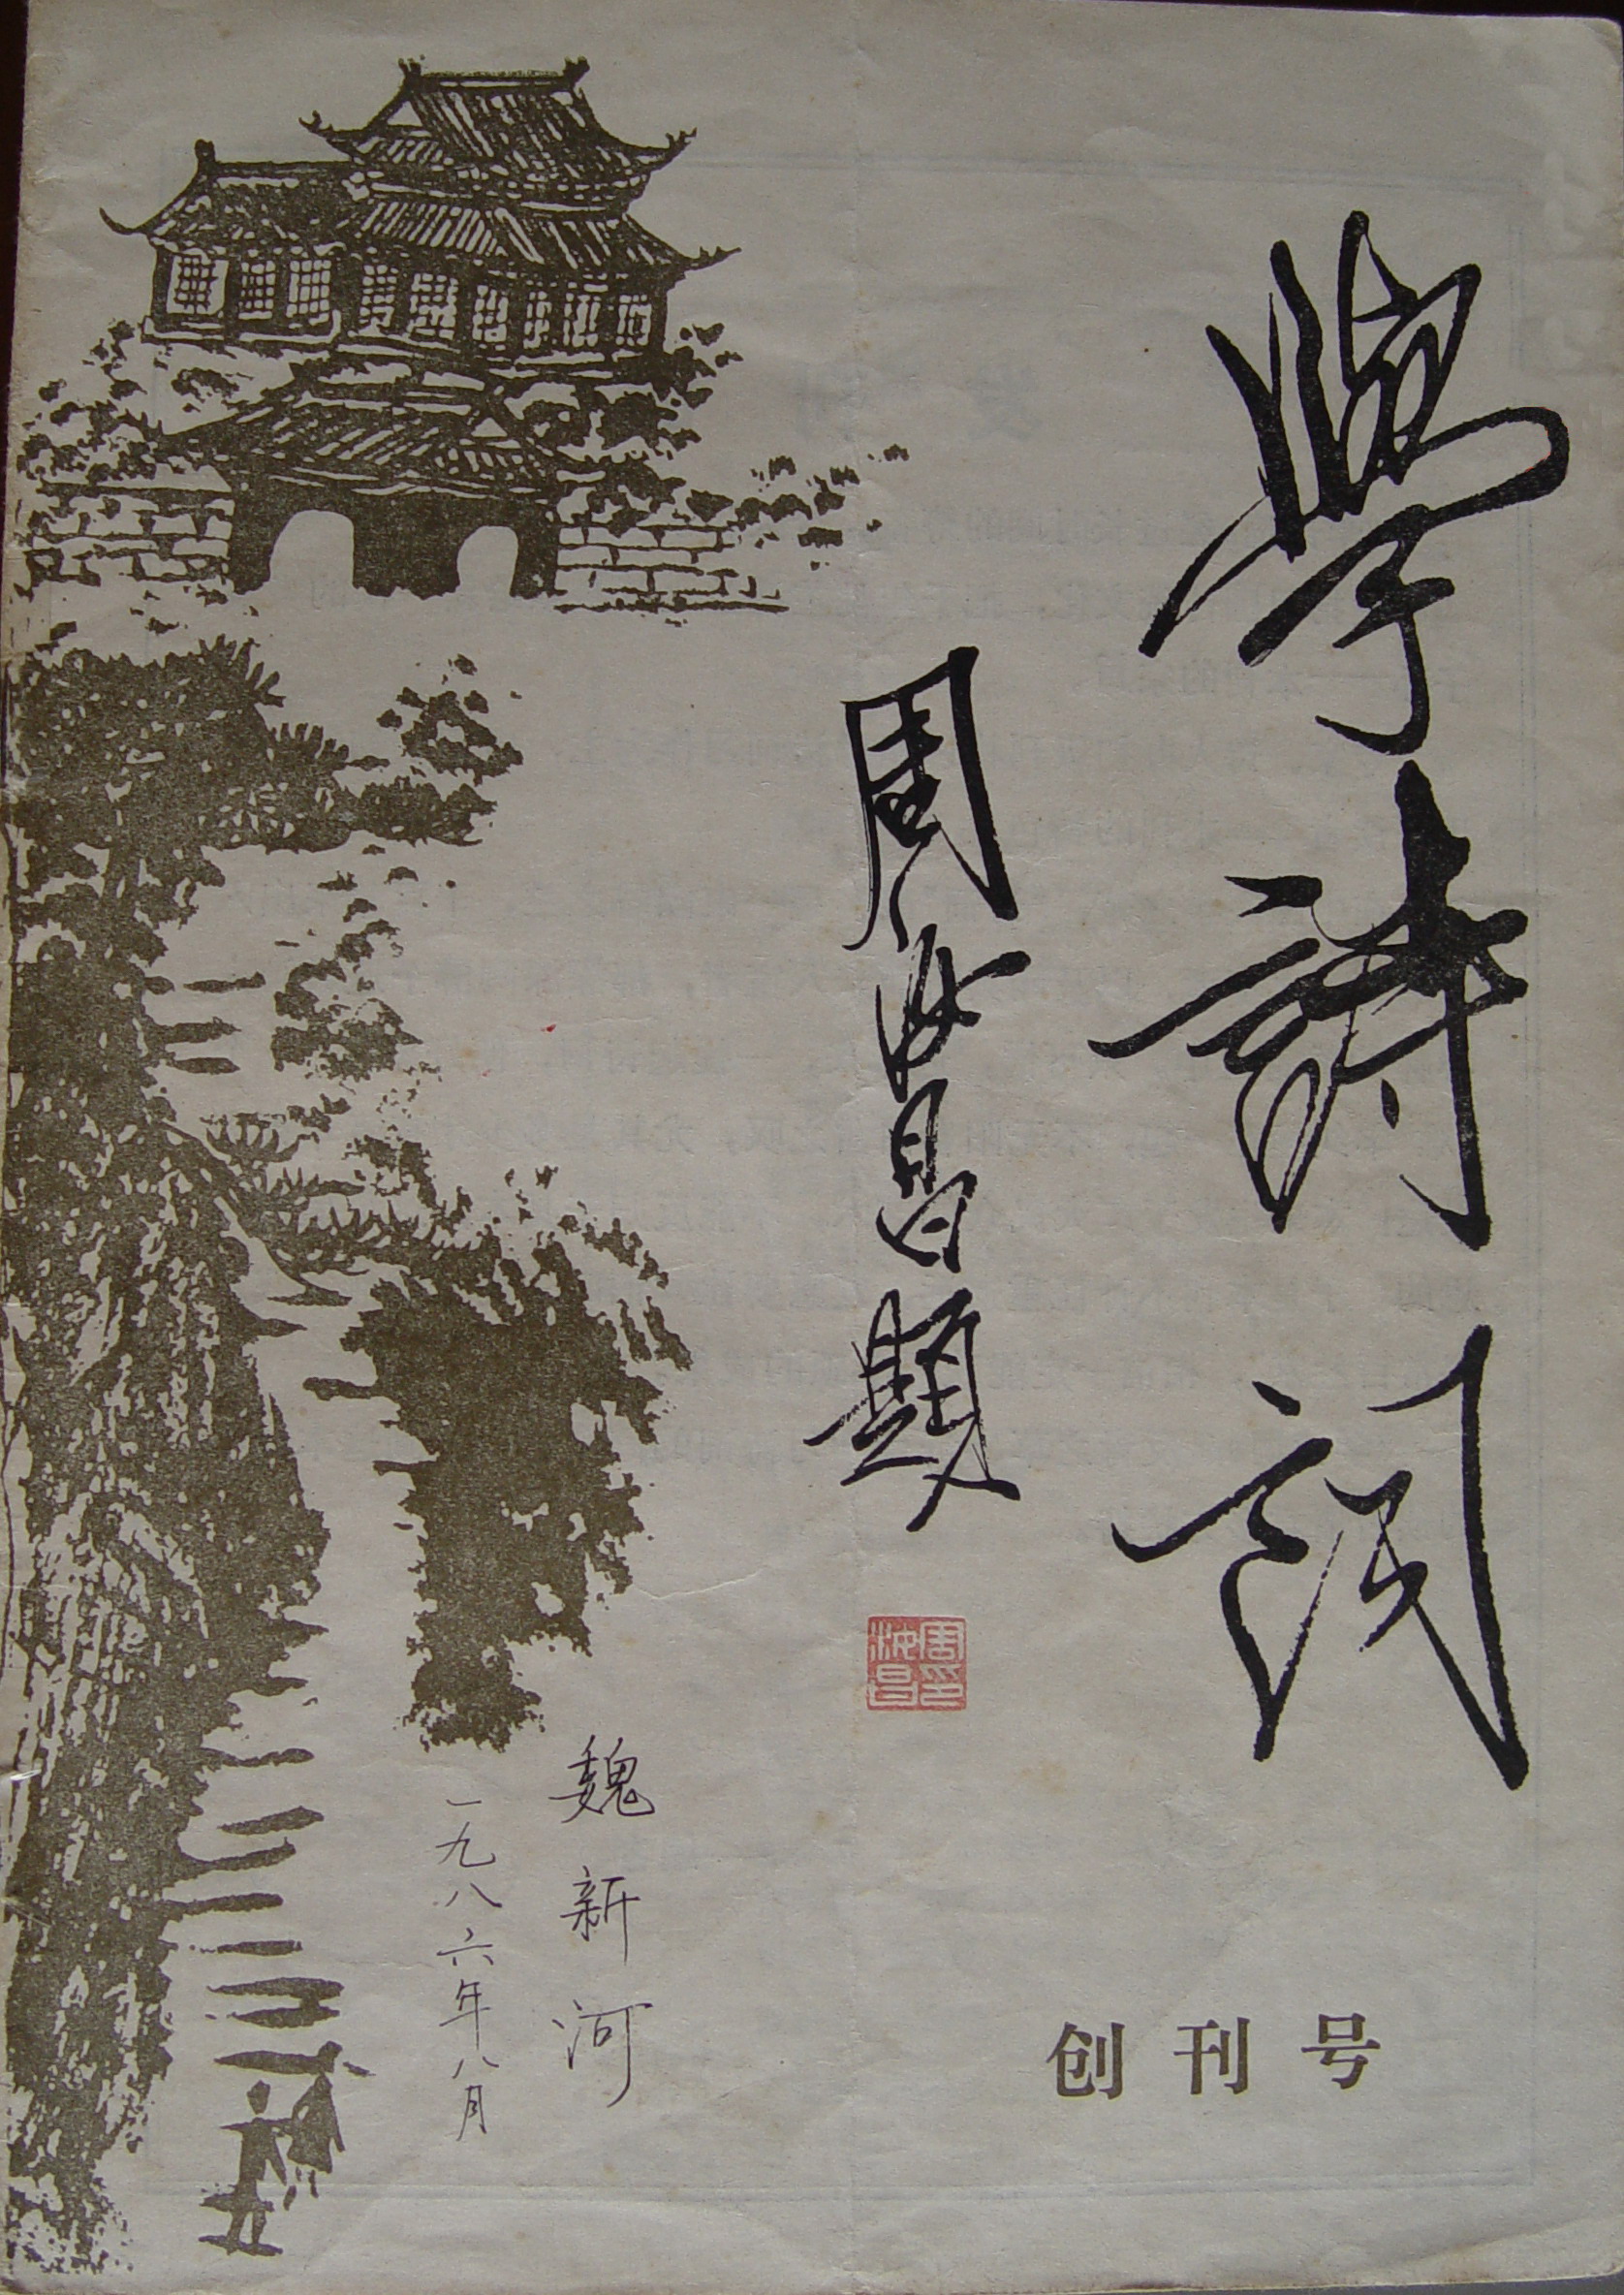 學詩詞
周汝昌題
周汝昌印
魏新河
一九八六年八月
创刊号